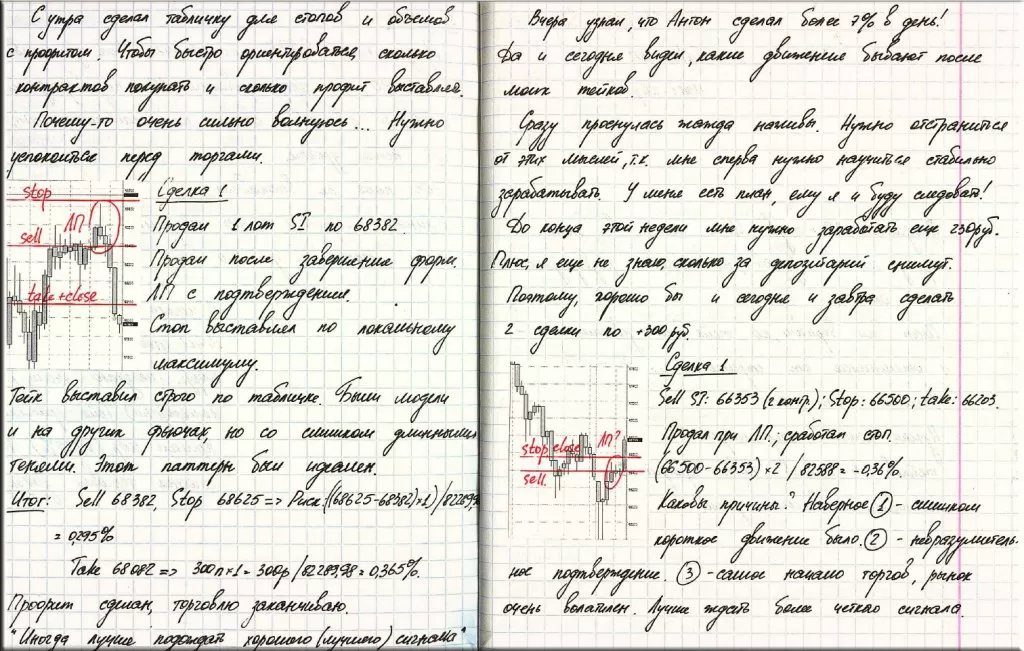 С утра сделал табличку для стопов и объёмов
с профитом. Чтобы быстро ориентироваться, сколько
контрактов покупать и сколько профит выставлять.
Почему-то очень сильно волнуюсь... Нужно
успокоиться перед торгами.
stop
ЛП
sell
take+close
Сделка 1
Продал 1 лот SI по 68382.
Продал после завершения форм.
ЛП с подтверждения.
Стоп выставлял по локальному
максимуму.
Тейк выставил строго по табличке. Были модели
и на других фьючах, но со слишком длинными
тенями. Этот паттерн был идеален.
Итог: Sell 68382, Stop 68625 => Риск: ((68625-68382)×1)/82289,98
= 0,295%
Take 68082 => 300п×1 = 300р/82289,98 = 0,365%.
Профит сделан, торговлю заканчиваю.
"Иногда лучше подождать хорошего (лучшего) сигнала"
Вчера узнал, что Антон сделал более 7% в день!
Да и сегодня видел, какие движения бывают после
моих тейков.
Сразу проснулась жажда наживы. Нужно отстраниться
от этих мыслей, т.к. мне сперва нужно научиться стабильно
зарабатывать. У меня есть план, ему я и буду следовать!
До конца этой недели мне нужно заработать еще 230руб.
Плюс, я еще не знаю, сколько за депозитарий снимут.
Поэтому, хорошо бы и сегодня и завтра сделать
2 сделки по +300руб.
stop close
ЛП?
sell
Сделка 1
Sell SI: 66353 (2 контр.); Stop: 66500; take: 66203.
Продал при ЛП.; сработал стоп.
(66500-66353)×2 / 82588 = -0,36%.
Каковы причины? Наверное 1 - слишком
короткое движение было. 2 - невразумитель-
ное подтверждение. 3 - самое начало торгов, рынок
очень волатилен. Лучше ждать более четкого сигнала.